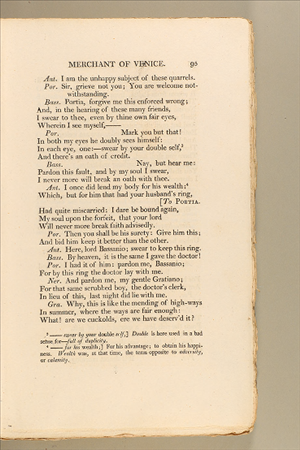 MERCHANT OF VENICE. 95
Ant. I am the unhappy subject of these quarrels.
Por. Sir, grieve not you; You are welcome not-
withstanding.
Bass. Portia, forgive me this enforced wrong;
And, in the hearing of these many friends,
I swear to thee, even by thine own fair eyes,
Wherein I see myself,——
Por. Mark you but that!
In both my eyes he doubly sees himself:
In each eye, one:—swear by your double self,³
And there's an oath of credit.
Bass. Nay, but hear me:
Pardon this fault, and by my soul I swear,
I never more will break an oath with thee.
Ant. I once did lend my body for his wealth;⁴
Which, but for him that had your husband's ring,
[To PORTIA.
Had quite miscarried: I dare be bound again,
My soul upon the forfeit, that your lord
Will never more break faith advisedly.
Por. Then you shall be his surety: Give him this;
And bid him keep it better than the other.
Ant. Here, lord Bassanio; swear to keep this ring.
Bass. By heaven, it is the same I gave the doctor!
Por. I had it of him: pardon me, Bassanio;
For by this ring the doctor lay with me.
Ner. And pardon me, my gentle Gratiano;
For that same scrubbed boy, the doctor's clerk,
In lieu of this, last night did lie with me.
Gra. Why, this is like the mending of high-ways
In summer, where the ways are fair enough:
What! are we cuckolds, ere we have deserv'd it?
³ —— swear by your double self,] Double is here used in a bad
sense for—full of duplicity.
⁴ —— for his wealth;] For his advantage; to obtain his happi-
ness. Wealth was, at that time, the term opposite to adversity,
or calamity.